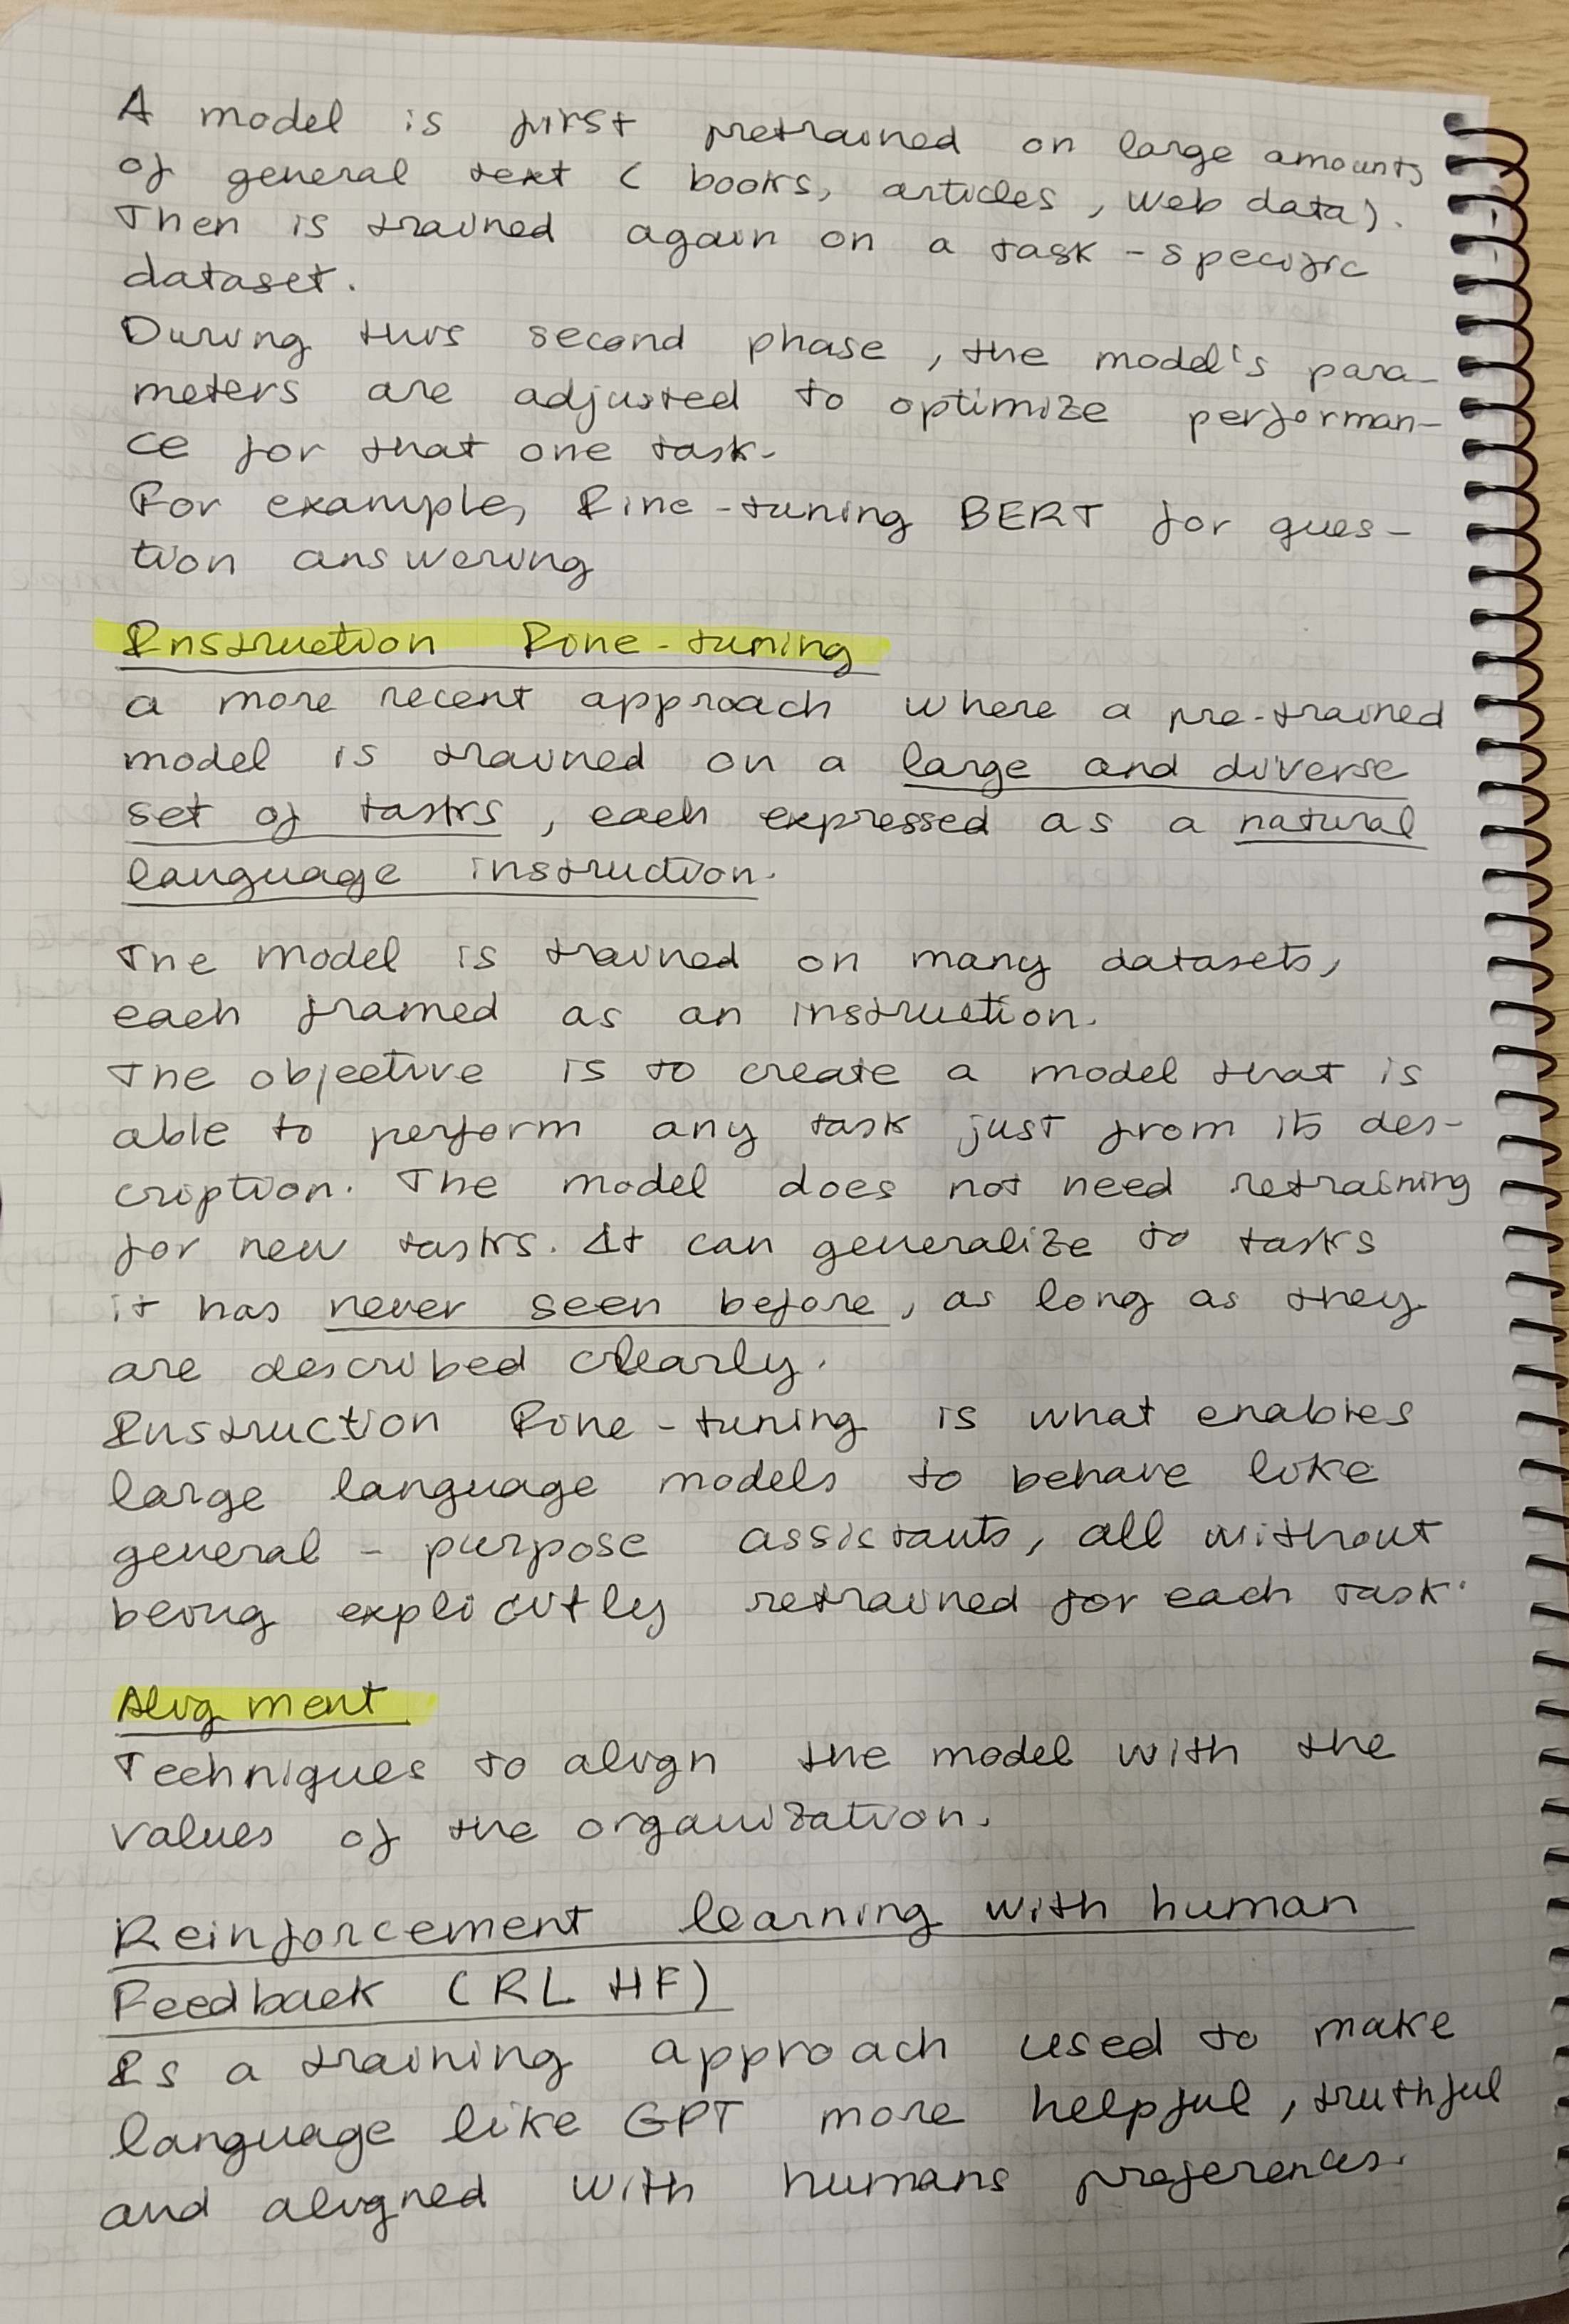 A model is first pretrained on large amounts
of general text ( books, articles, web data).
Then is trained again on a task - specific
dataset.
During this second phase, the model's para-
meters are adjusted to optimize performan-
ce for that one task.
For example, Fine-tuning BERT for ques-
tion answering
Instruction Fine-tuning
a more recent approach where a pre-trained
model is trained on a large and diverse
set of tasks, each expressed as a natural
language instruction.
The model is trained on many datasets,
each framed as an instruction.
The objective is to create a model that is
able to perform any task just from its des-
cription. The model does not need retraining
for new tasks. It can generalize to tasks
it has never seen before, as long as they
are described clearly.
Instruction Fine-tuning is what enables
large language models to behave like
general - purpose assistants, all without
being explicitly retrained for each task.
Aligment
Techniques to align the model with the
values of the organization.
Reinforcement learning with human
Feedback (RLHF)
Is a training approach used to make
language like GPT more helpful, truthful
and aligned with humans preferences.